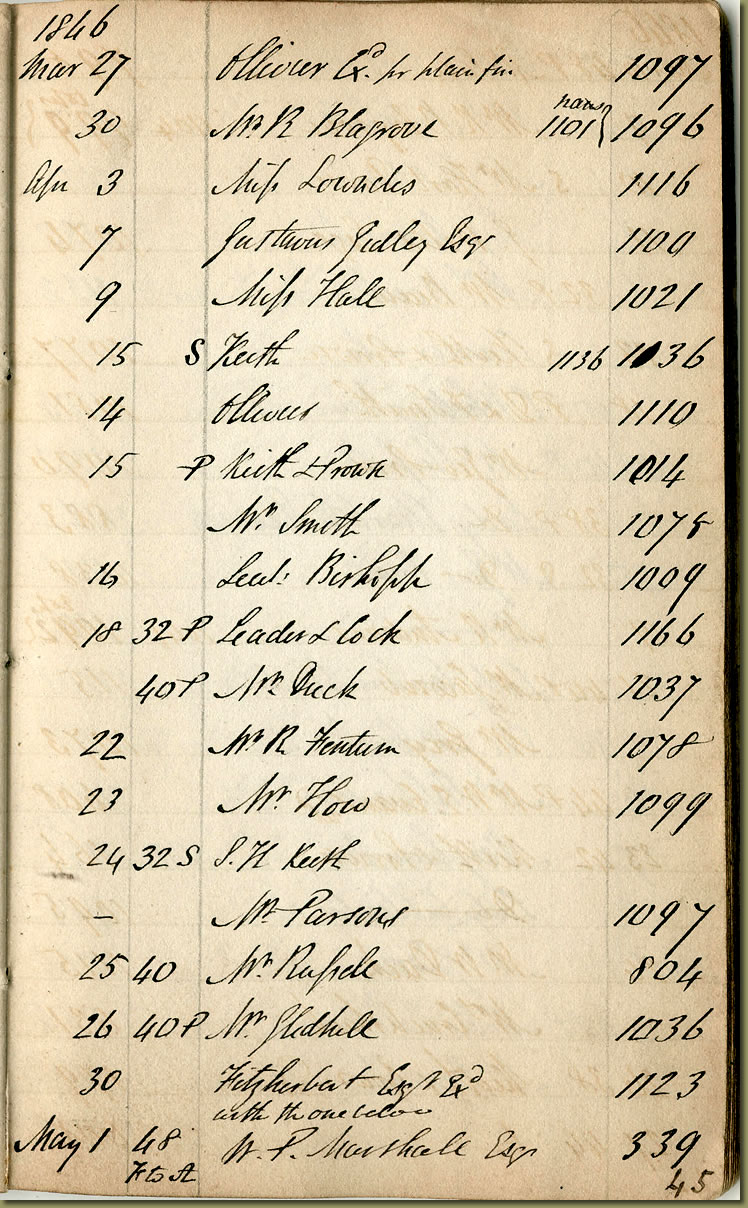 1846
Mar 27 Ollivier Exd. for plain fin. 1097
30 Mr R Blagrove naus 1101} 1096
Apr 3 Miss Lowndes 1116
7 Gustavus Gidley Esqr 1100
9 Miss Hall 1021
15 S Keith 1136 1036
14 Ollivier 1110
15 P Keith & Prowse 1014
Mr. Smith 1078
16 Leut: Bishopp 1009
18 32 P Leader & Cock 1166
40 P Mr. Duck 1037
22 Mr R. Fentum 1078
23 Mr. How 1099
24 32 S S. H Keith
– Mr. Parsons 1097
25 40 Mr. Russell 804
26 40 P Mr. Gledhill 1036
30 Fitzherbert Esqr Exd 1123
with the one below
May 1 48 W. P. Marshall Esqr 339
F to A 45